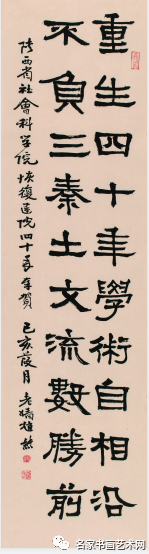 重生四十年學術自相沿
不負三秦土文流數勝前
陝西省社會科學院恢復建院四十周年賀 己亥葭月
名家书画艺术网